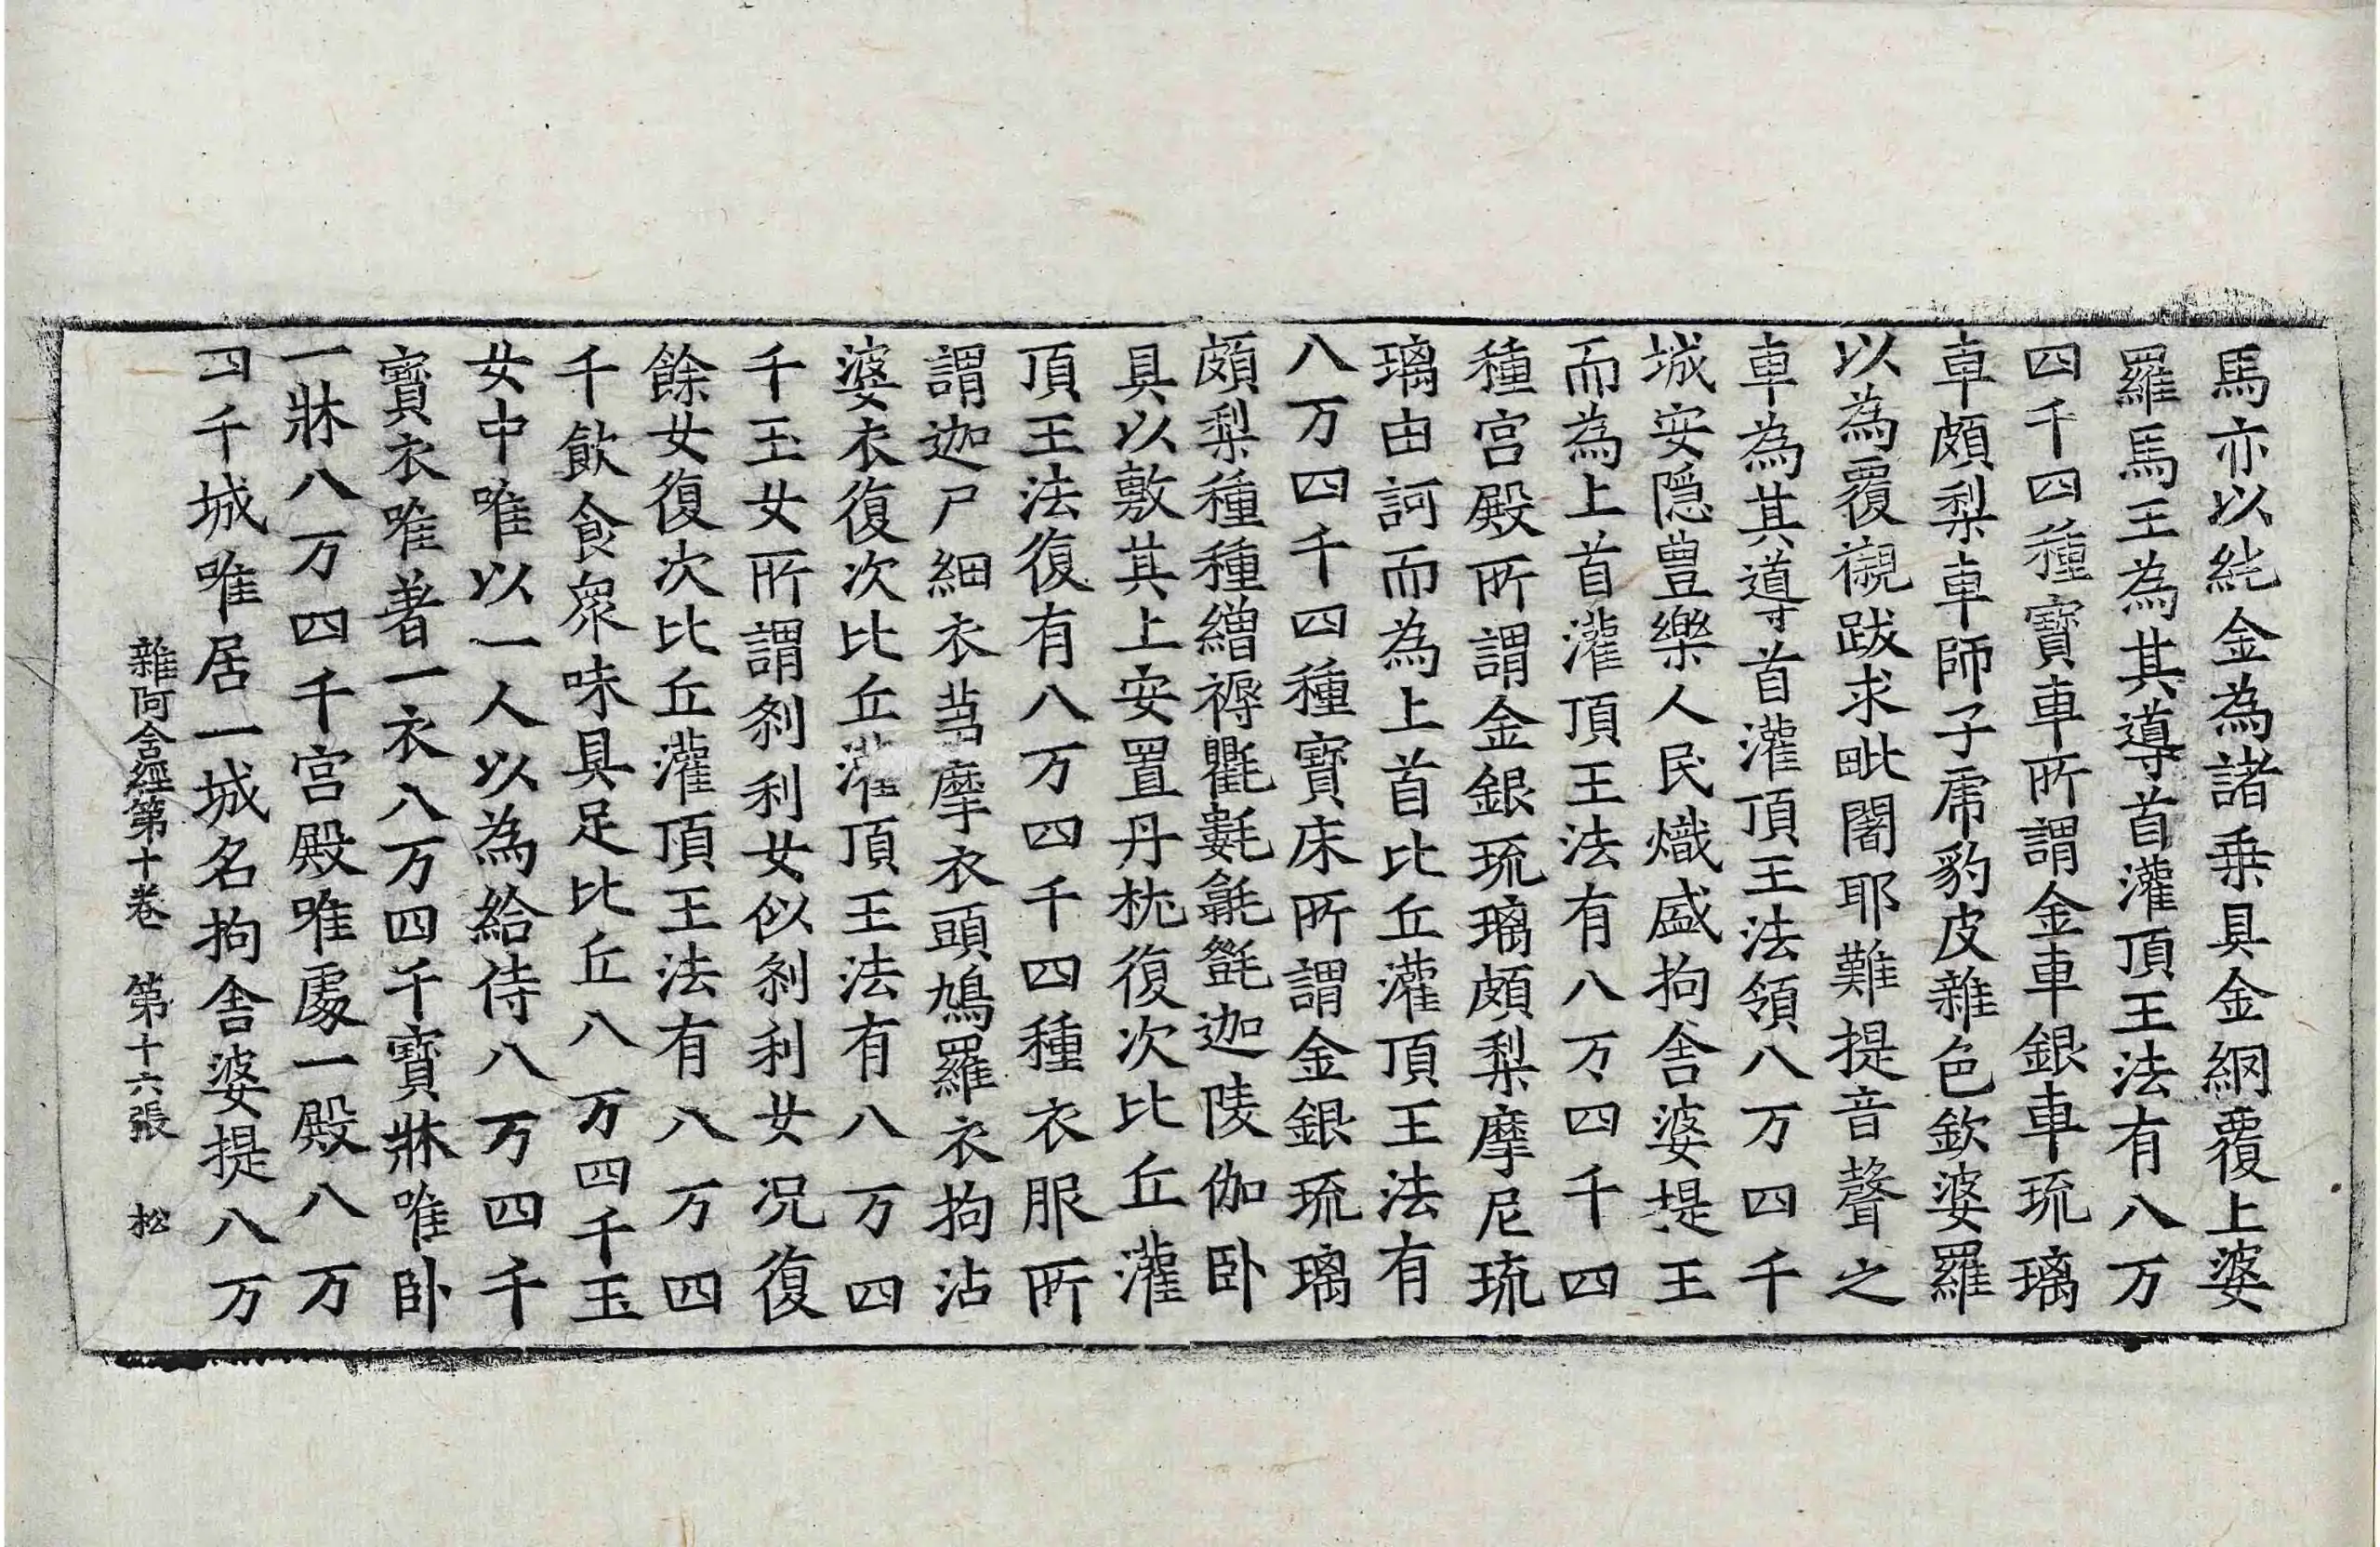 馬亦以純金為諸乗具金網覆上婆
羅馬王為其導首灌頂王法有八万
四千四種寶車所謂金車銀車琉璃
車頗梨車師子虎豹皮雜色欽婆羅
以為覆襯跋求毗闍耶難提音聲之
車為其導首灌頂王法領八万四千
城安隱豊樂人民熾盛拘舎婆提王
而為上首灌頂王法有八万四千四
種宮殿所謂金銀琉璃頗梨摩尼琉
璃由訶而為上首比丘灌頂王法有
八万四千四種寶床所謂金銀琉璃
頗梨種種繒褥氍氀毾㲪迦陵伽卧
具以敷其上安置丹枕復次比丘灌
頂王法復有八万四千四種衣服所
謂迦尸細衣芻摩衣頭鳩羅衣拘沾
婆衣復次比丘灌頂王法有八万四
千玉女所謂刹利女似刹利女况復
餘女復次比丘灌頂王法有八万四
千飲食衆味具足比丘八万四千玉
女中唯以一人以為給侍八万四千
寶衣唯著一衣八万四千寶牀唯卧
一牀八万四千宮殿唯處一殿八万
四千城唯居一城名拘舎婆提八万
雜阿含經第十卷　第十六張　松